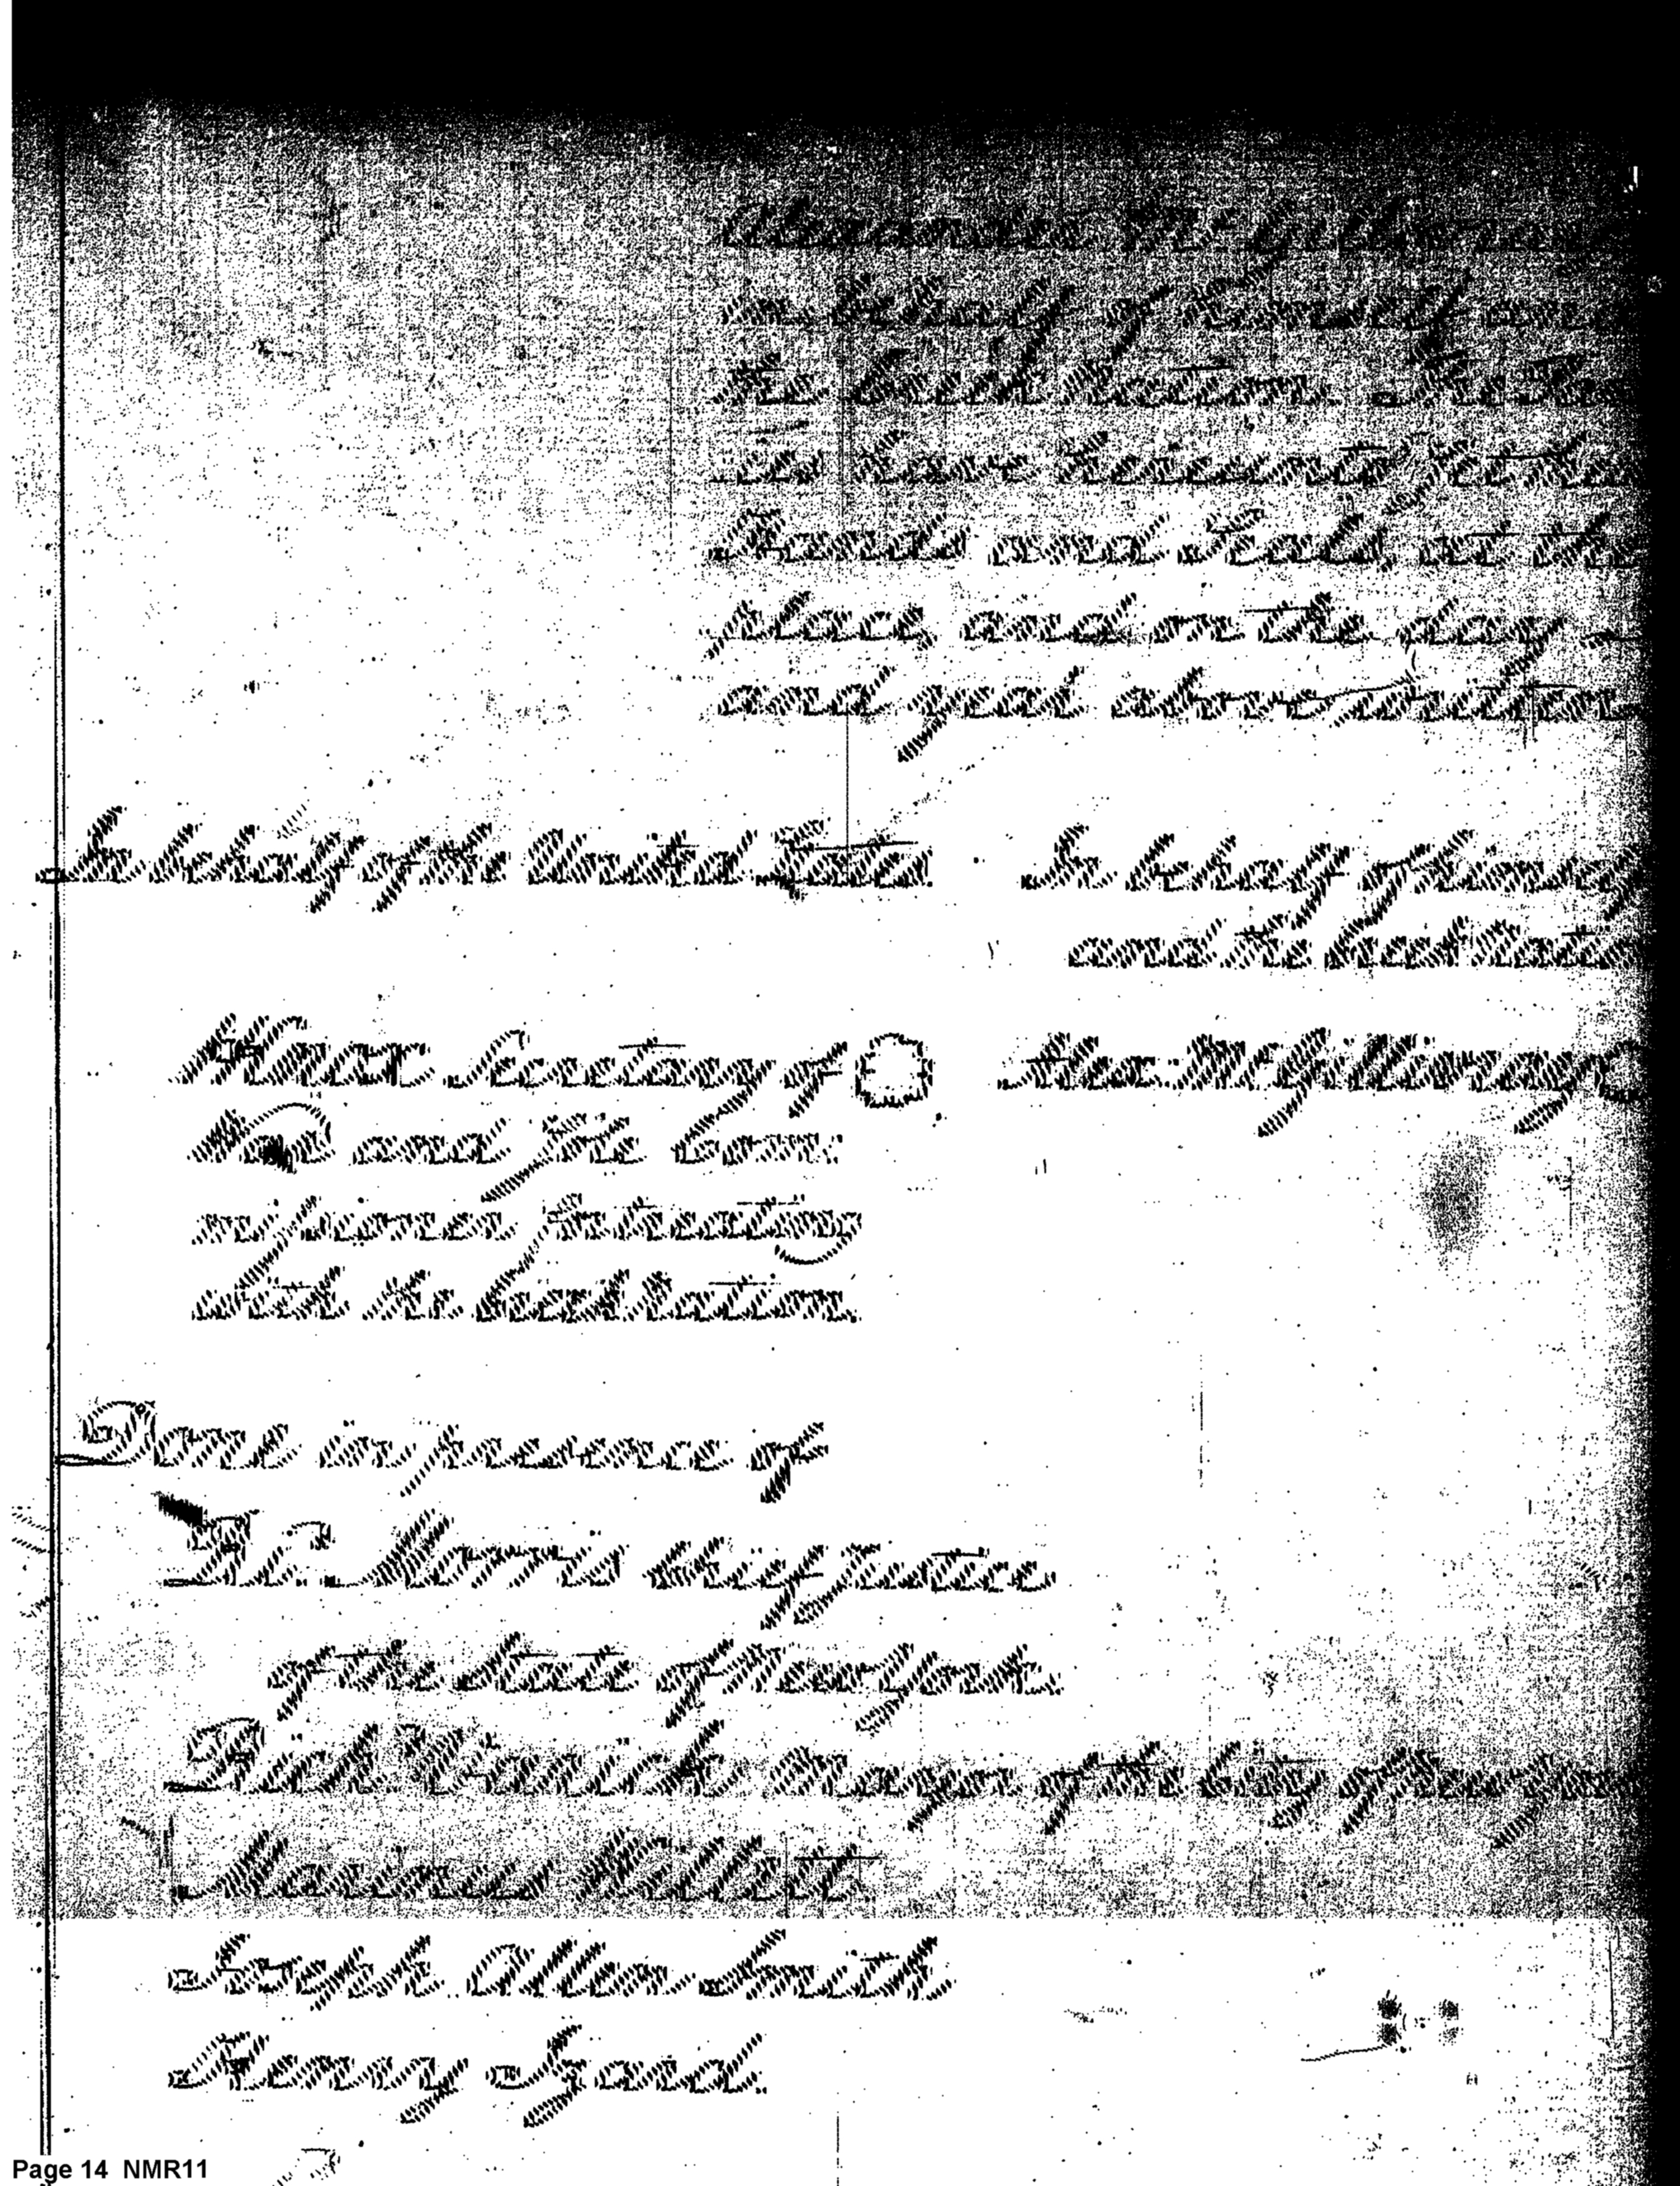 Alexander McGillivray
in behalf of himself and
the Creek Nation
have hereunto set their
Hands and Seals, at the
place, and on the day
and year above written
In behalf of the United States
In behalf of himself
and the Creek Nation
HKnox Secretary of
War and sole Com:
missioner for treating
with the Creek Nation.
Alex: McGillivray
Done in presence of
Rd: Morris Chief Justice
of the State of New York.
Richd Varick Mayor of the City of New York
Marinus Willett
Joseph Allen Smith
Henry Izard.
Page 14 NMR11